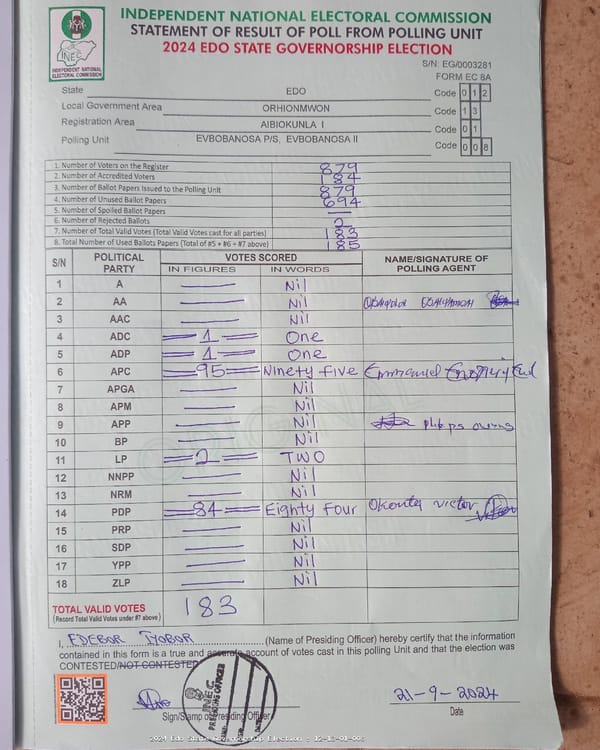 INDEPENDENT NATIONAL ELECTORAL COMMISSION
STATEMENT OF RESULT OF POLL FROM POLLING UNIT
2024 EDO STATE GOVERNORSHIP ELECTION
INEC
INDEPENDENT NATIONAL
ELECTORAL COMMISSION
S/N: EG/0003281
FORM EC 8A
State EDO Code 0 1 2
Local Government Area ORHIONMWON Code 1 3
Registration Area AIBIOKUNLA I Code 0 1
Polling Unit EVBOBANOSA P/S, EVBOBANOSA II Code 0 0 8
1. Number of Voters on the Register 879
2. Number of Accredited Voters 184
3. Number of Ballot Papers Issued to the Polling Unit 879
4. Number of Unused Ballot Papers 694
5. Number of Spoiled Ballot Papers —
6. Number of Rejected Ballots 2
7. Number of Total Valid Votes (Total Valid Votes cast for all parties) 183
8. Total Number of Used Ballots Papers (Total of #5 + #6 + #7 above) 185
S/N POLITICAL PARTY VOTES SCORED NAME/SIGNATURE OF POLLING AGENT
IN FIGURES IN WORDS
1 A — Nil
2 AA — Nil
3 AAC — Nil
4 ADC =1= One
5 ADP =1= One
6 APC =95= Ninety five Emmanuel
7 APGA — Nil
8 APM — Nil
9 APP — Nil
10 BP — Nil
11 LP =2= TWO
12 NNPP — Nil
13 NRM — Nil
14 PDP =84= Eighty Four Victor
15 PRP — Nil
16 SDP — Nil
17 YPP — Nil
18 ZLP — Nil
TOTAL VALID VOTES 183
(Record Total Valid Votes under #7 above)
I, EDEBOR IYOBOR (Name of Presiding Officer) hereby certify that the information
contained in this form is a true and accurate account of votes cast in this polling Unit and that the election was
CONTESTED/NOT CONTESTED
INEC
PRESIDING OFFICER
21-9-2024
Sign/Stamp of Presiding Officer Date
2024 Edo State Governorship Election : 12-13-01-008